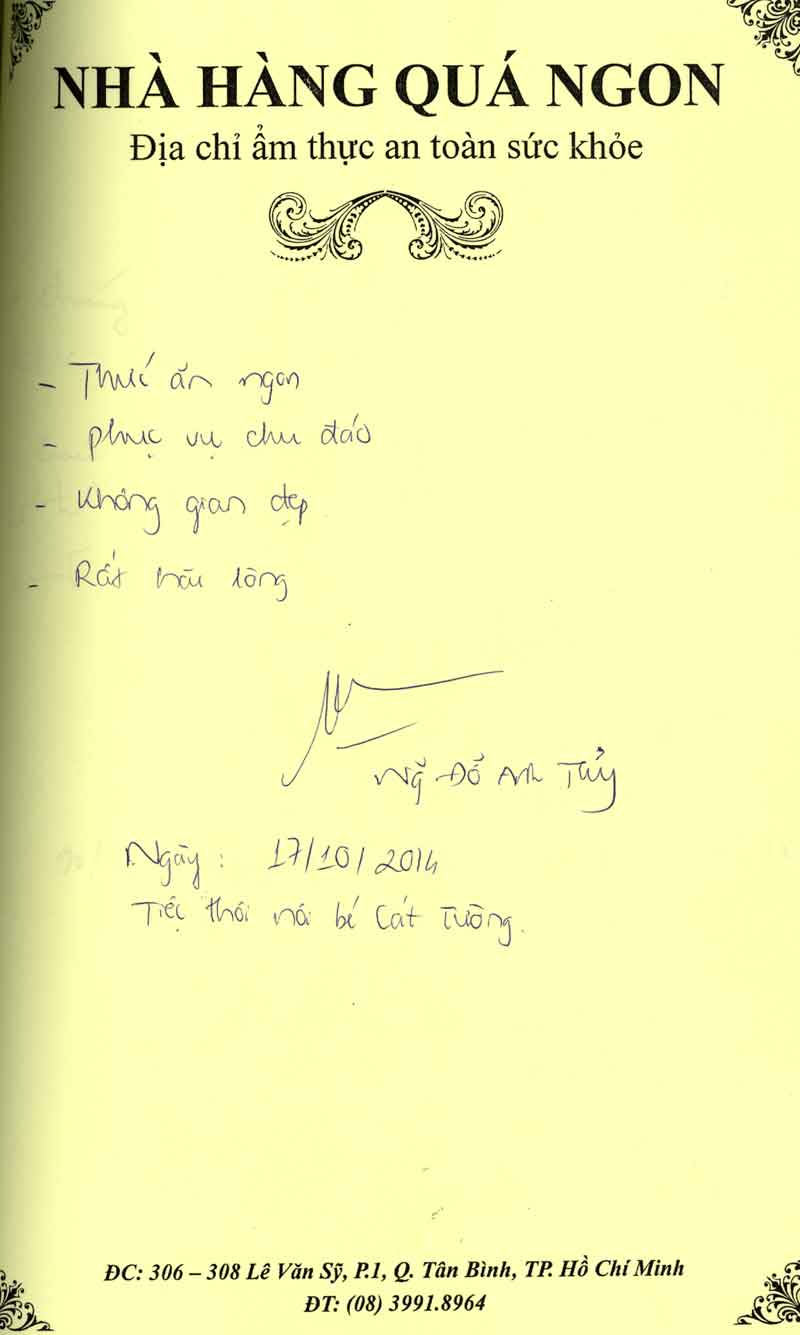 NHÀ HÀNG QUÁ NGON
Địa chỉ ẩm thực an toàn sức khỏe
- Thức ăn ngon
- phục vụ chu đáo
- Không gian đẹp
- Rất hài lòng
Ng Đỗ Anh Thủy
Ngày : 17/10/2014
Tiệc thôi nôi bé Cát Tường.
ĐC: 306 – 308 Lê Văn Sỹ, P.1, Q. Tân Bình, TP. Hồ Chí Minh
ĐT: (08) 3991.8964